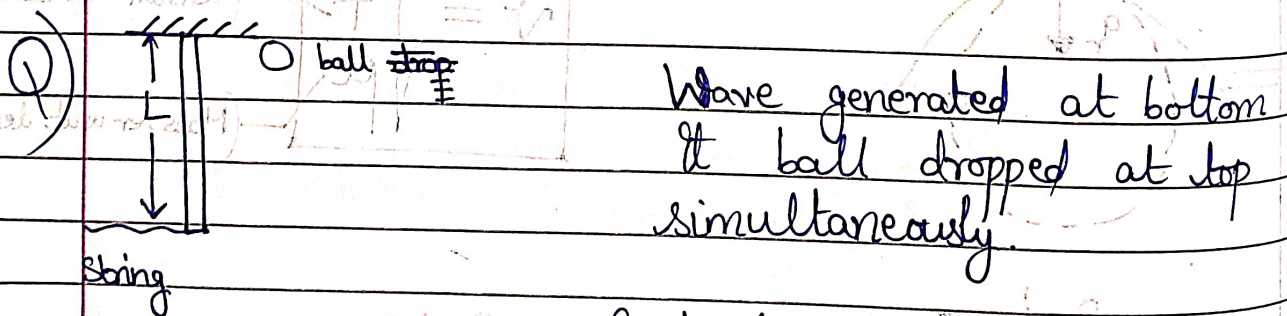 Q)
ball drop
L
Wave generated at bottom
& ball dropped at top
simultaneously.
String